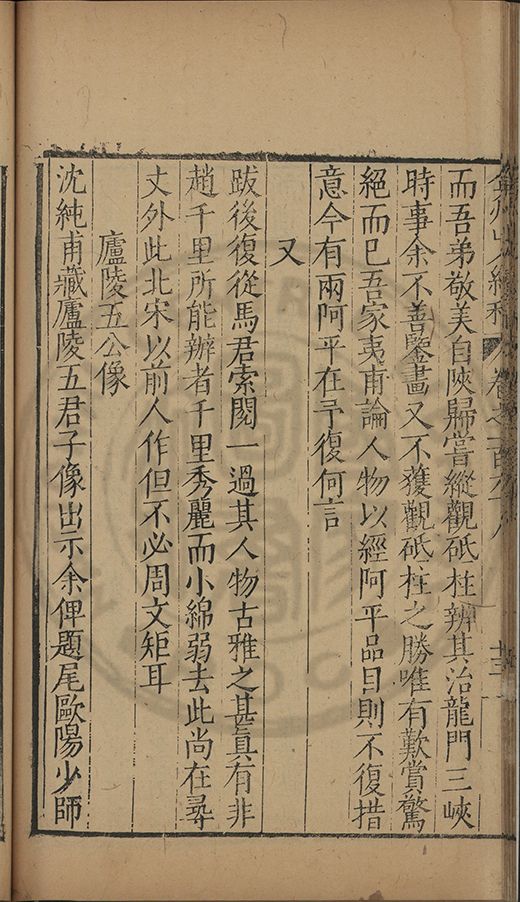 弇州山人續稿 卷之一百六十八 十三
而吾弟敬美自陝歸嘗縱觀砥柱辨其治龍門三峽
時事余不善鑒畫又不獲觀砥柱之勝唯有歎賞驚
絕而巳吾家夷甫論人物以經阿平品目則不復措
意今有兩阿平在予復何言
又
跋後復從馬君索閱一過其人物古雅之甚真有非
趙千里所能辦者千里秀麗而小綿弱去此尚在尋
丈外此北宋以前人作但不必周文矩耳
廬陵五公像
沈純甫藏廬陵五君子像出示余俾題尾歐陽少師